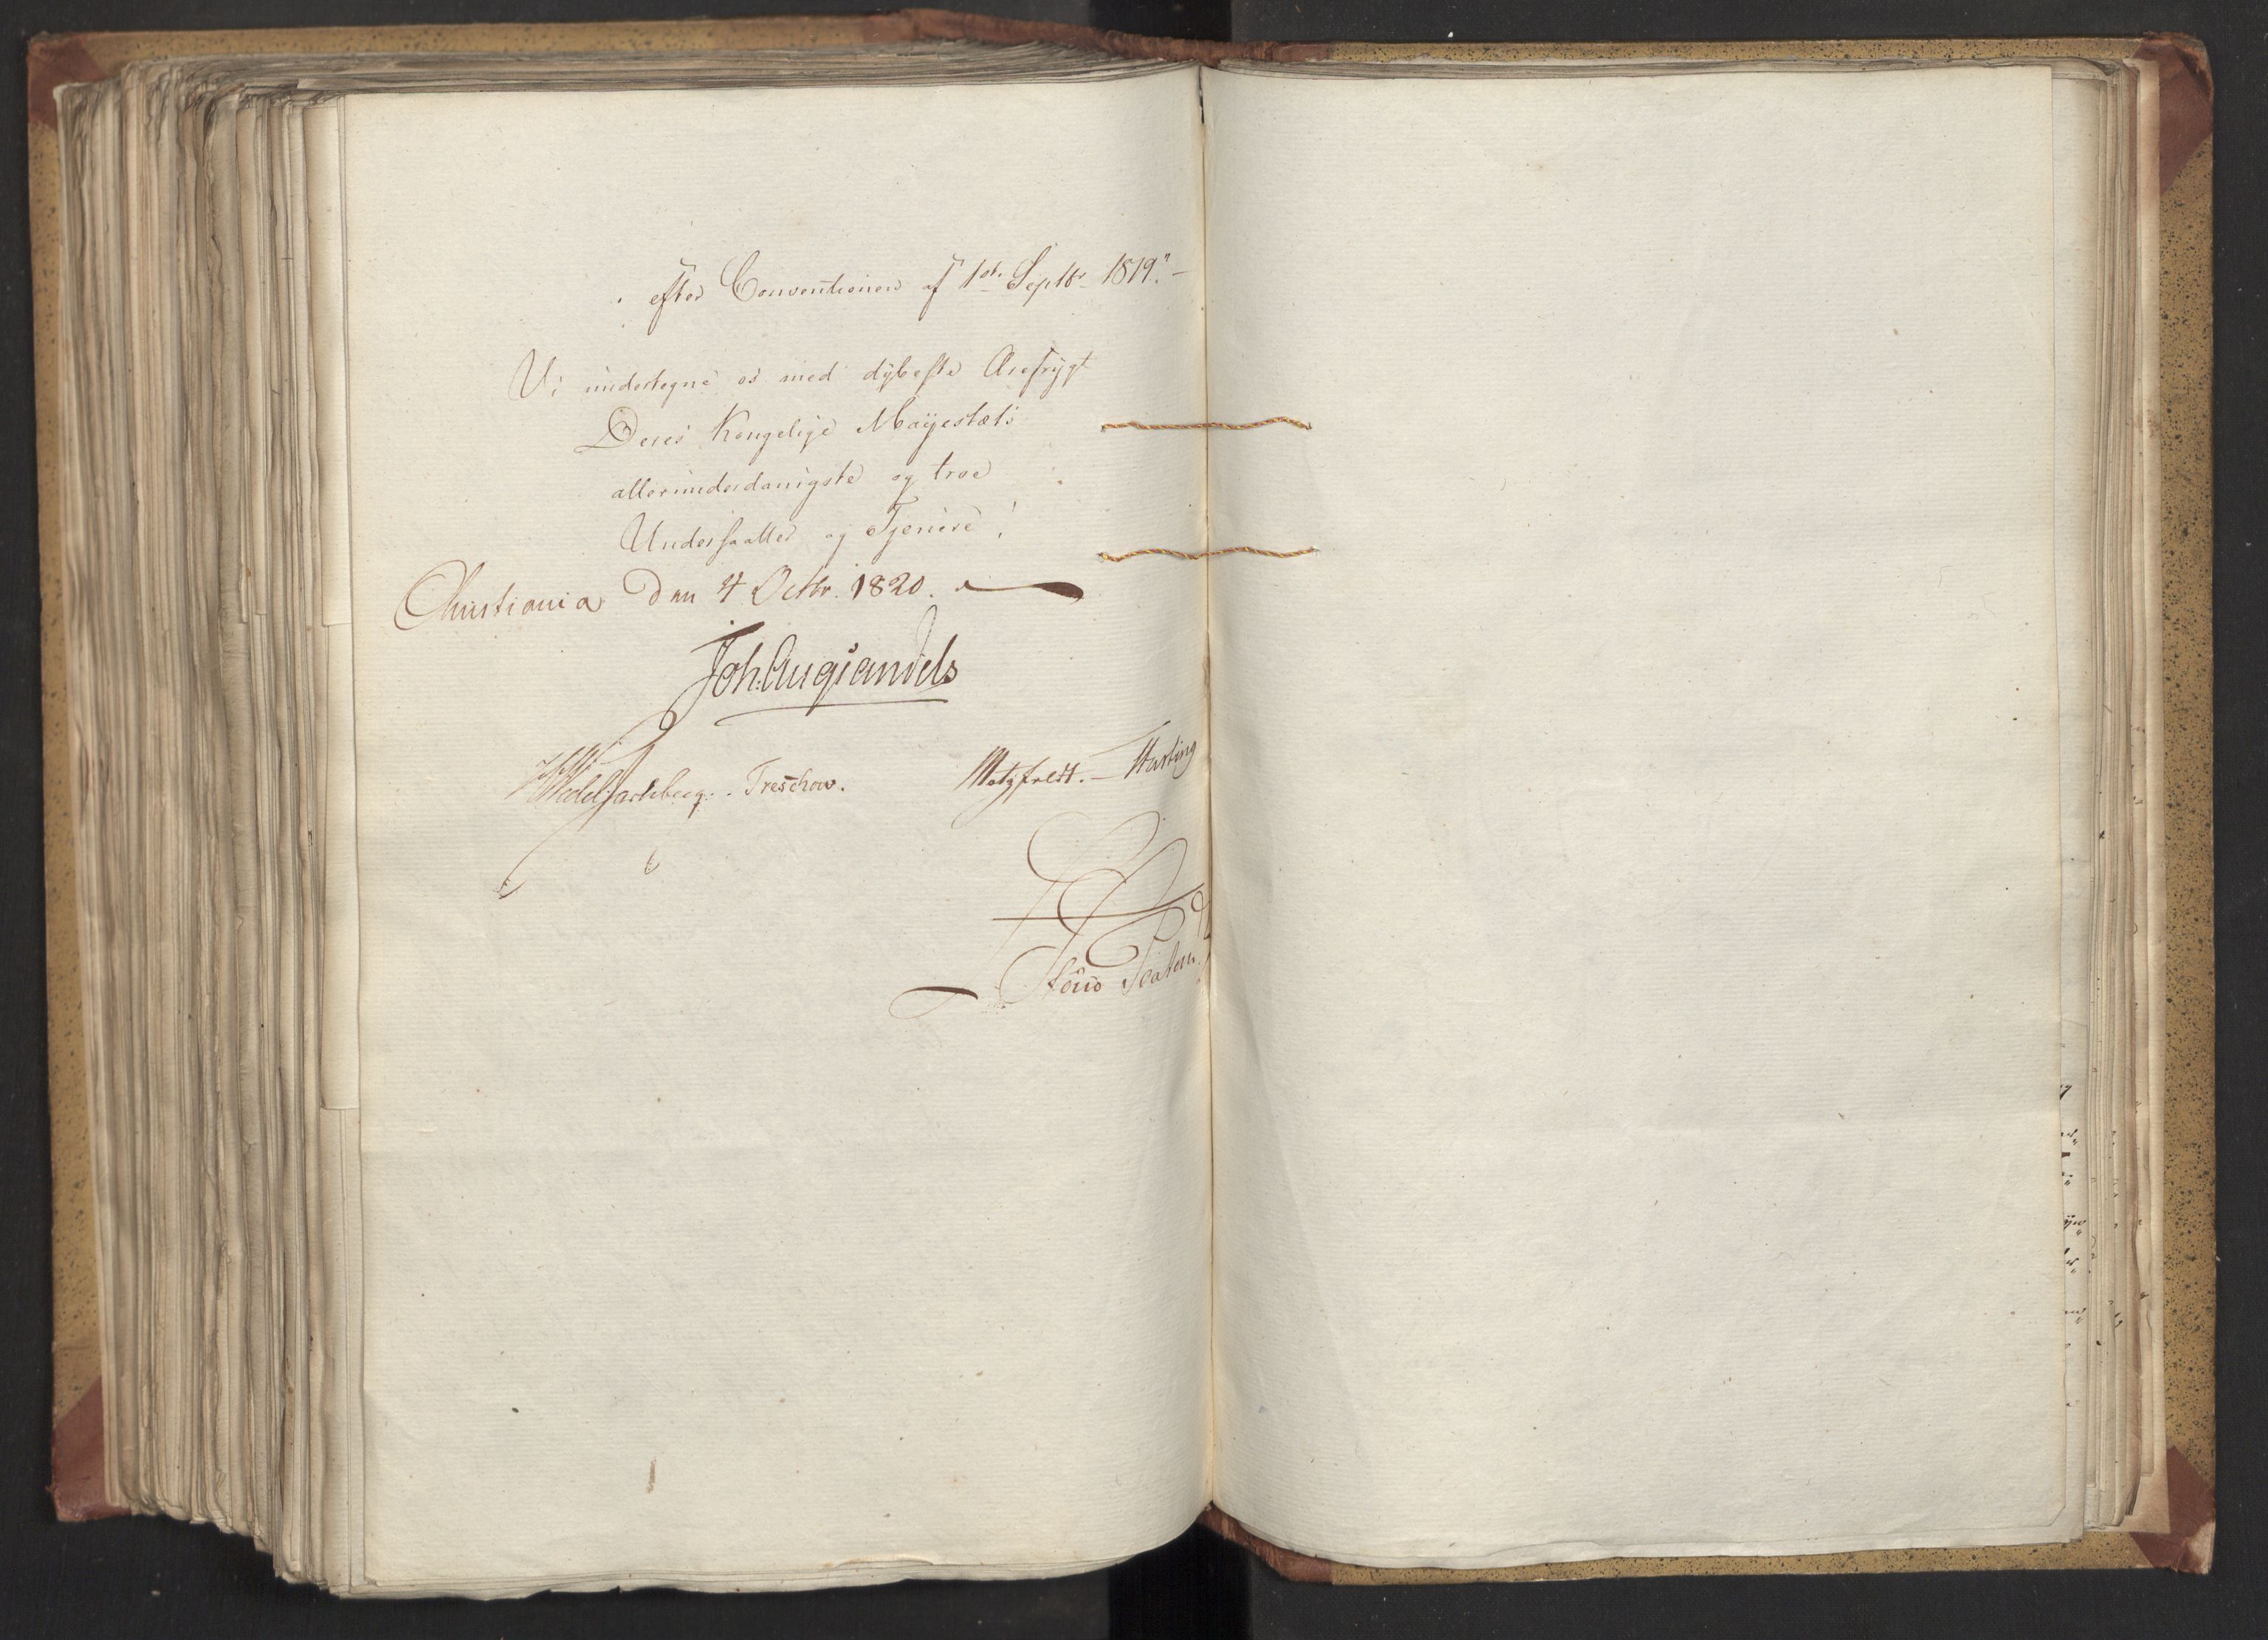 efter Conventionen af 1st. Septbr. 1819."-
Vi undertegne os med dybeste Ærefrygt
Deres Kongelige Mayestæts
allerunderdanigste og troe
Undersaatter og Tjenere!
Christiania den 4 Octbr. 1820.
Joh: Aug: Sandels
HWedel Jarlsberg. Treschow. Motzfeldt. - Hasting